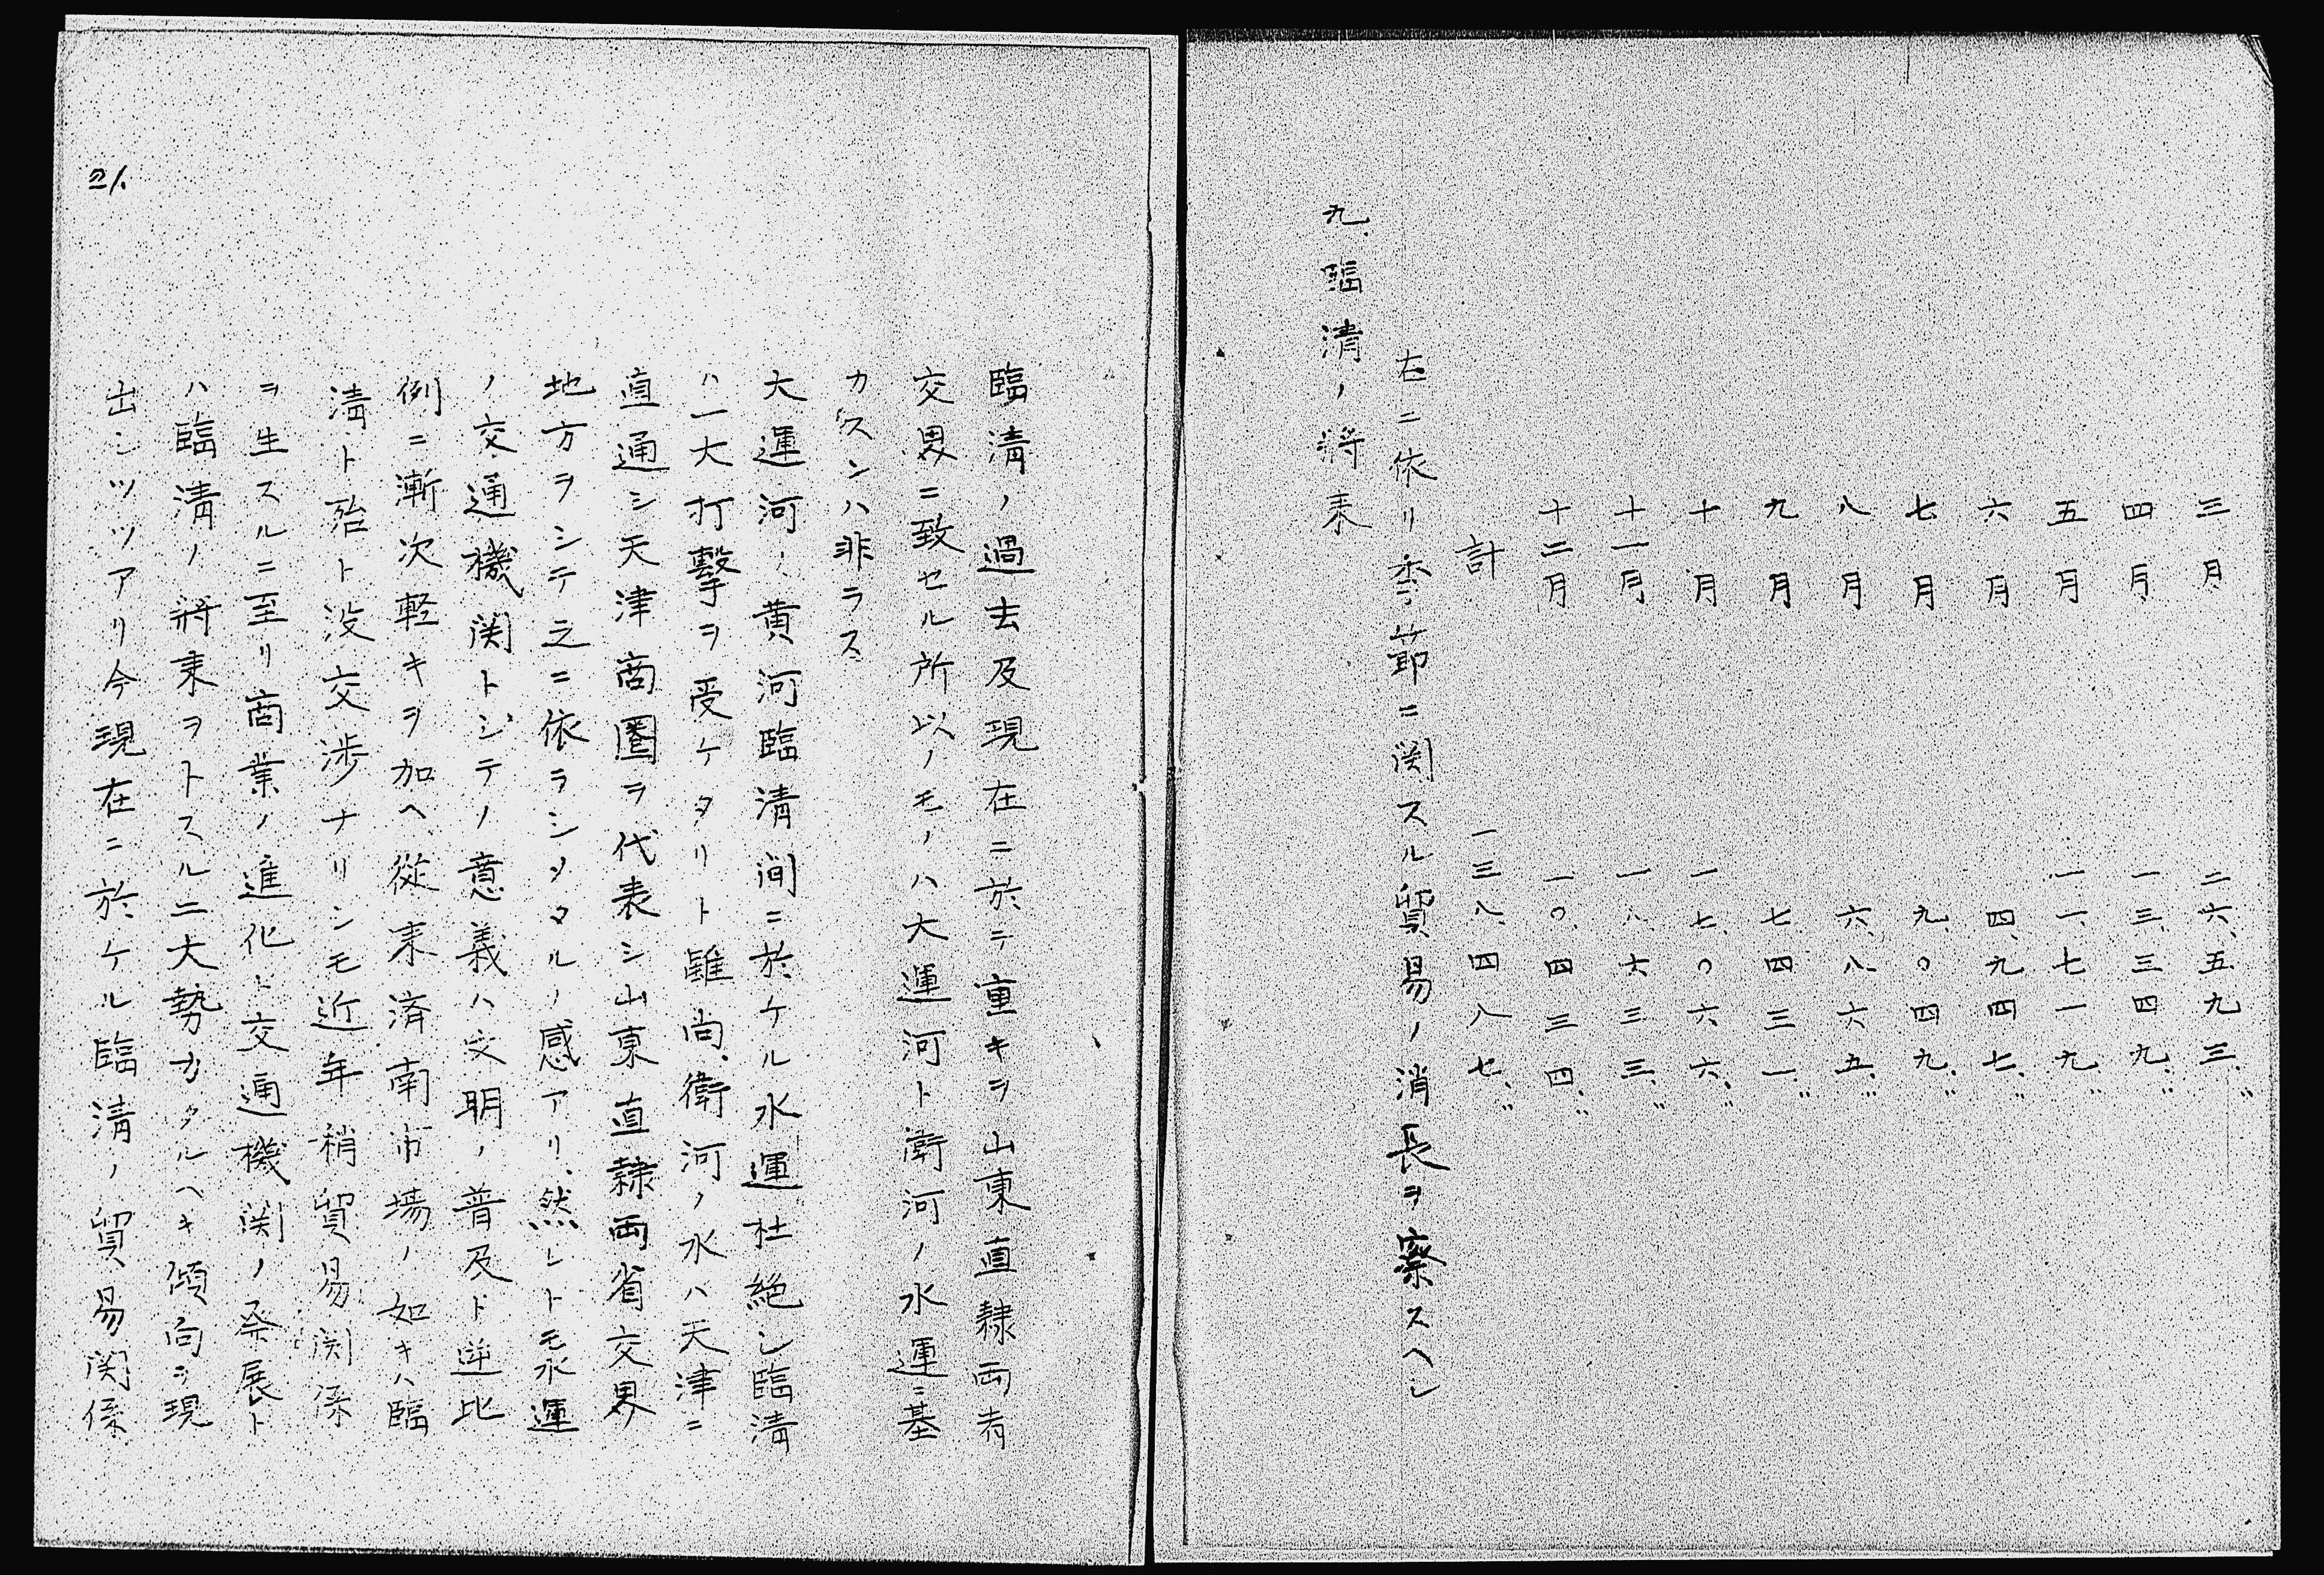 三月 二六、五九三、〃
四月 一三、三四九、〃
五月 一一、七一九、〃
六月 四、九四七、〃
七月 九、〇四九、〃
八月 六、八六五、〃
九月 七四三一、〃
十月 一七、〇六六、〃
十一月 一八、六三三、〃
十二月 一〇、四三四、〃
計 一三八、四八七、〃
右ニ依リ季節ニ関スル貿易ノ消長ヲ察スヘシ
九、臨清ノ将来
臨清ノ過去及現在ニ於テ重キヲ山東直隷両省
交界ニ致セル所以ノモノハ大運河ト衛河ノ水運ニ基
カスンハ非ラス
大運河ノ黄河臨清间ニ於ケル水運杜絶シ臨清
ハ一大打擊ヲ受ケタリト雖尚、衛河ノ水ハ天津ニ
直通シ天津商圏ヲ代表シ山東直隷両省交界
地方ヲシテ之ニ依ラシメタルノ感アリ、然レトモ水運
ノ交通機関トシテノ意義ハ文明ノ普及ト逆比
例ニ漸次軽キヲ加ヘ、從来済南市場ノ如キハ臨
清ト殆ト没交渉ナリシモ近年稍貿易関係
ヲ生スルニ至リ商業ノ進化ト交通機関ノ発展ト
ハ臨清ノ將来ヲトスルニ大勢力タルヘキ傾向ヲ現
出シツツアリ今現在ニ於ケル臨清ノ貿易関係
21.